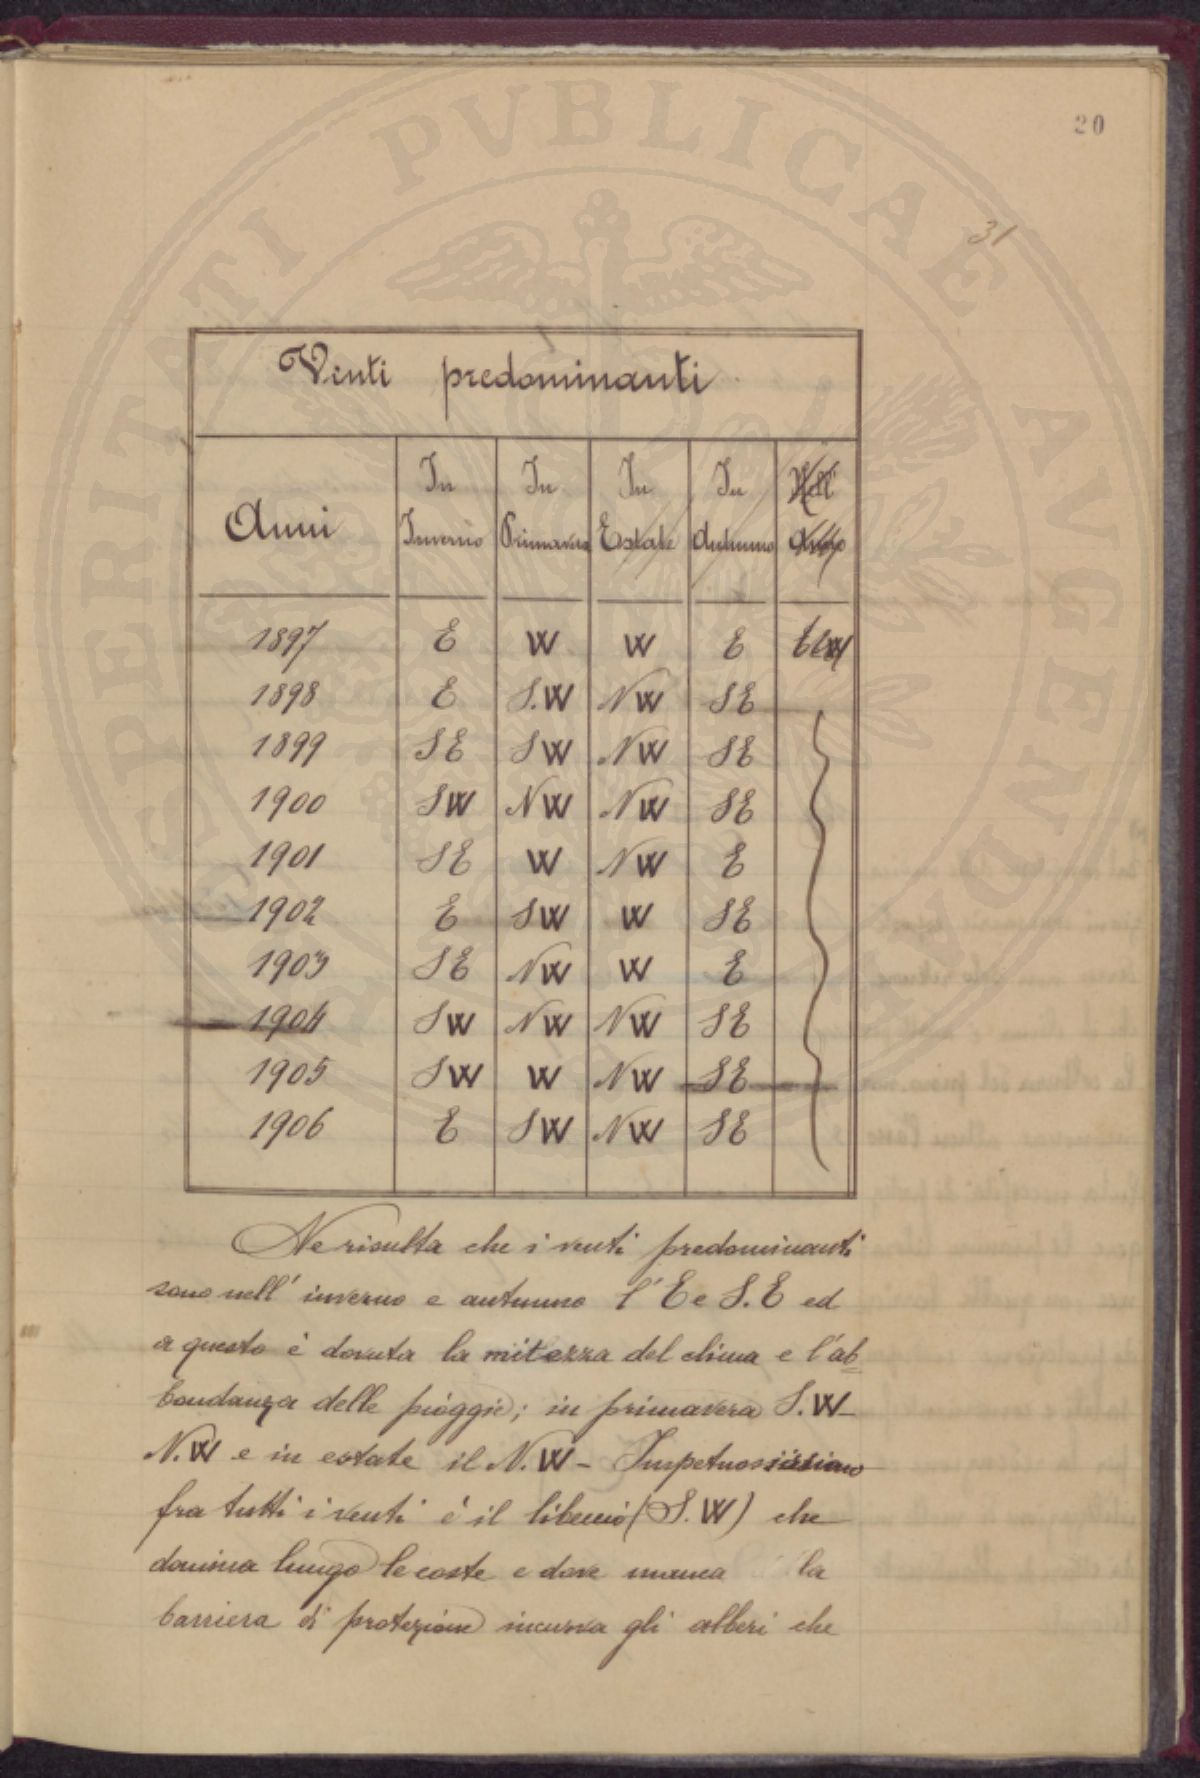 20
31
Venti predominanti
Anni In Inverno In Primavera In Estate In Autunno Nell' Anno
1897 E W W E
1898 E S.W NW SE
1899 SE SW NW SE
1900 SW NW NW SE
1901 SE W NW E
1902 E SW W SE
1903 SE NW W E
1904 SW NW NW SE
1905 SW W NW SE
1906 E SW NW SE
Ne risulta che i venti predominanti
sono nell' inverno e autunno l'E e S.E ed
a questo è dovuta la mitezza del clima e l'ab
bondanza delle pioggie; in primavera S.W-
N.W e in estate il N.W - Impetuosissimo
fra tutti i venti è il libeccio (S.W) che
domina lungo le coste e dove manca la
barriera di protezione incurva gli alberi che
SPERITATI PVBLICAE AVGENDAE